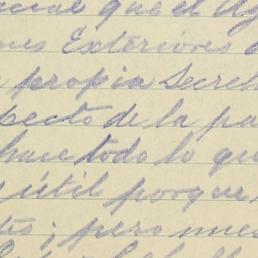 cial que el Ag
nes Exteriores
propia Secret
pecto de la pa
hace todo lo qu
útil porque
tro; pero nues